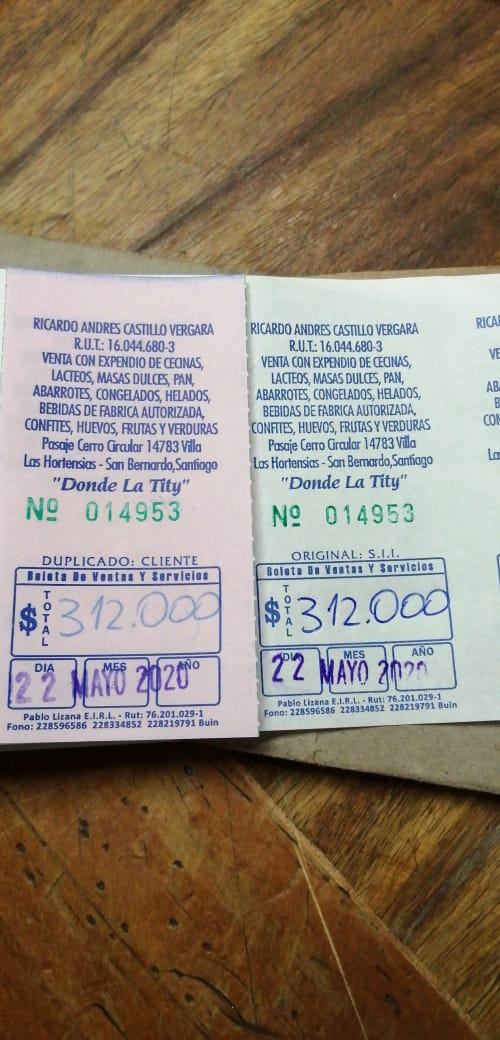 RICARDO ANDRES CASTILLO VERGARA
R.U.T.: 16.044.680-3
VENTA CON EXPENDIO DE CECINAS,
LACTEOS, MASAS DULCES, PAN,
ABARROTES, CONGELADOS, HELADOS,
BEBIDAS DE FABRICA AUTORIZADA,
CONFITES, HUEVOS, FRUTAS Y VERDURAS
Pasaje Cerro Circular 14783 Villa
Las Hortensias - San Bernardo,Santiago
"Donde La Tity"
Nº 014953
DUPLICADO: CLIENTE
Boleta De Ventas Y Servicios
$ TOTAL 312.000
DIA MES AÑO
22 MAYO 2020
Pablo Lizana E.I.R.L. - Rut: 76.201.029-1
Fono: 228596586 228334852 228219791 Buin
RICARDO ANDRES CASTILLO VERGARA
R.U.T.: 16.044.680-3
VENTA CON EXPENDIO DE CECINAS,
LACTEOS, MASAS DULCES, PAN,
ABARROTES, CONGELADOS, HELADOS,
BEBIDAS DE FABRICA AUTORIZADA,
CONFITES, HUEVOS, FRUTAS Y VERDURAS
Pasaje Cerro Circular 14783 Villa
Las Hortensias - San Bernardo,Santiago
"Donde La Tity"
Nº 014953
ORIGINAL: S.I.I.
Boleta De Ventas Y Servicios
$ TOTAL 312.000
DIA MES AÑO
22 MAYO 2020
Pablo Lizana E.I.R.L. - Rut: 76.201.029-1
Fono: 228596586 228334852 228219791 Buin